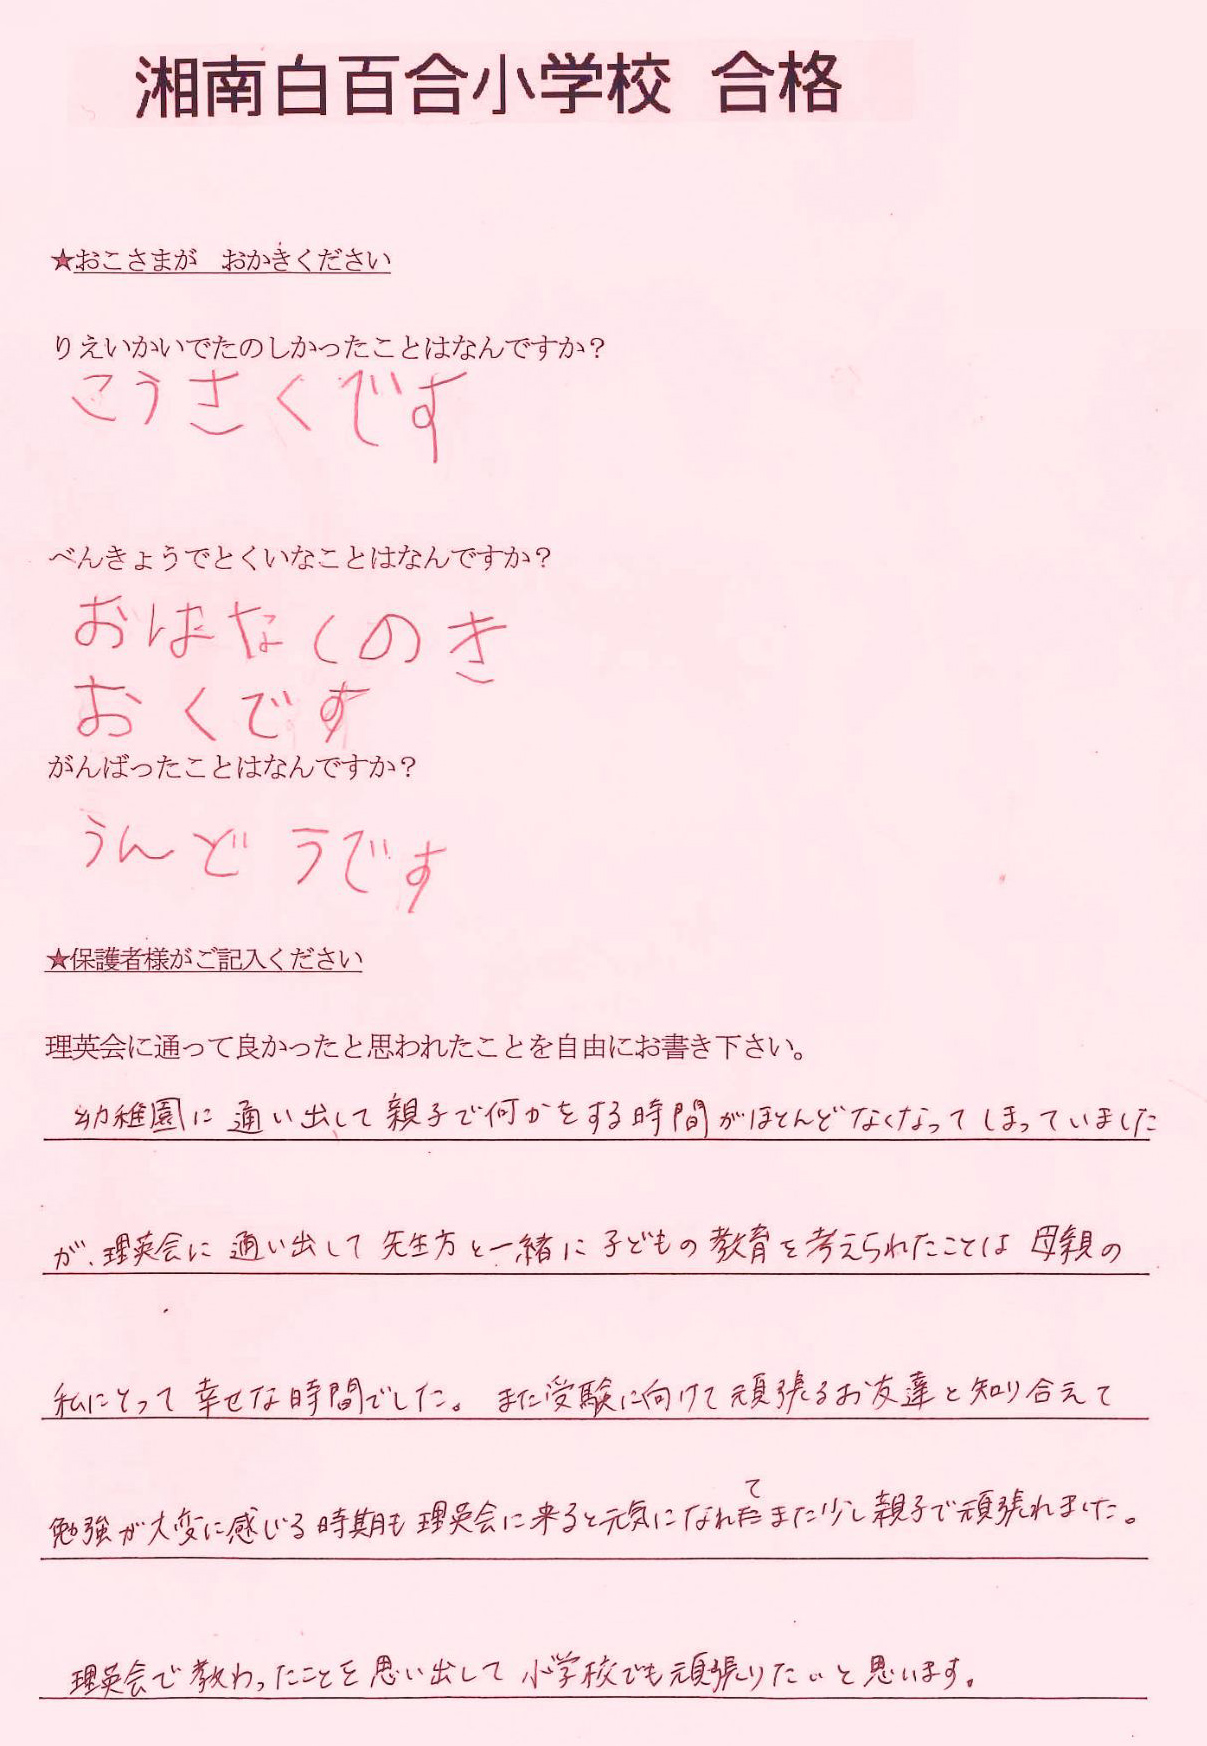 湘南白百合小学校 合格
★おこさまが おかきください
りえいかいでたのしかったことはなんですか?
こうさくです
べんきょうでとくいなことはなんですか?
おはなしのき
おくです
がんばったことはなんですか?
うんどうです
★保護者様がご記入ください
理英会に通って良かったと思われたことを自由にお書き下さい。
幼稚園に通い出して親子で何かをする時間がほとんどなくなってしまっていました
が、理英会に通い出して先生方と一緒に子どもの教育を考えられたことは母親の
私にとって幸せな時間でした。また受験に向けて頑張るお友達と知り合えて
勉強が大変に感じる時期も理英会に来ると元気になれてまた少し親子で頑張れました。
理英会で教わったことを思い出して小学校でも頑張りたいと思います。